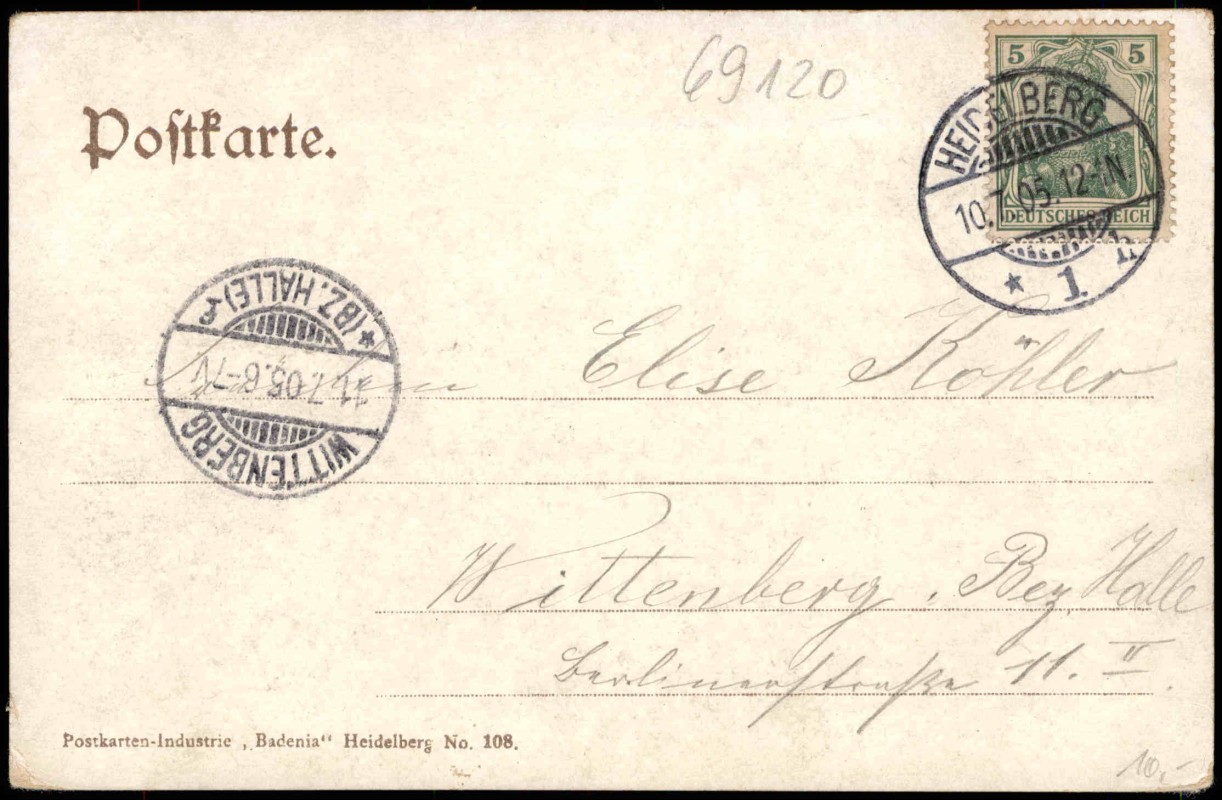 69120
5 5
DEUTSCHES REICH
HEIDELBERG
10.7.05.12-1N.
* 1. n
Poſtkarte.
WITTENBERG
11.7.05.6-7V
* (BZ. HALLE)
Elise Köhler
Wittenberg. Bez. Halle
Berlinerstraße 11. II
Postkarten-Industrie „Badenia“ Heidelberg No. 108.
10.-